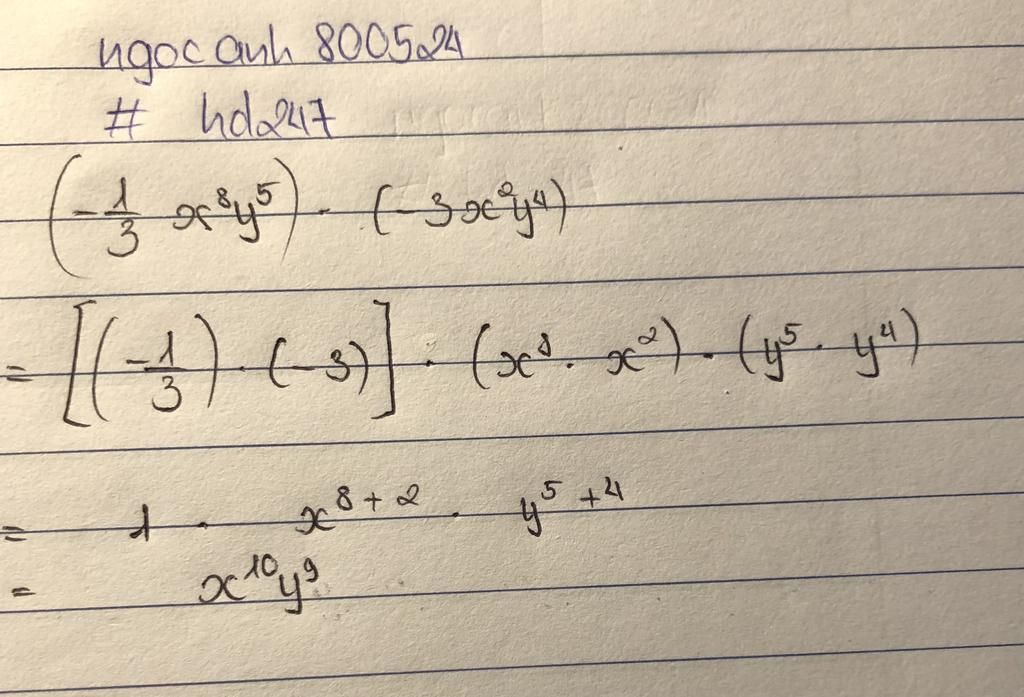 ngocanh 800524
# hd247
(-1/3 x⁸y⁵) . (-3x²y⁴)
= [(-1/3) . (-3)] . (x⁸ . x²) . (y⁵ . y⁴)
= 1 . x⁸⁺² . y⁵⁺⁴
= x¹⁰y⁹